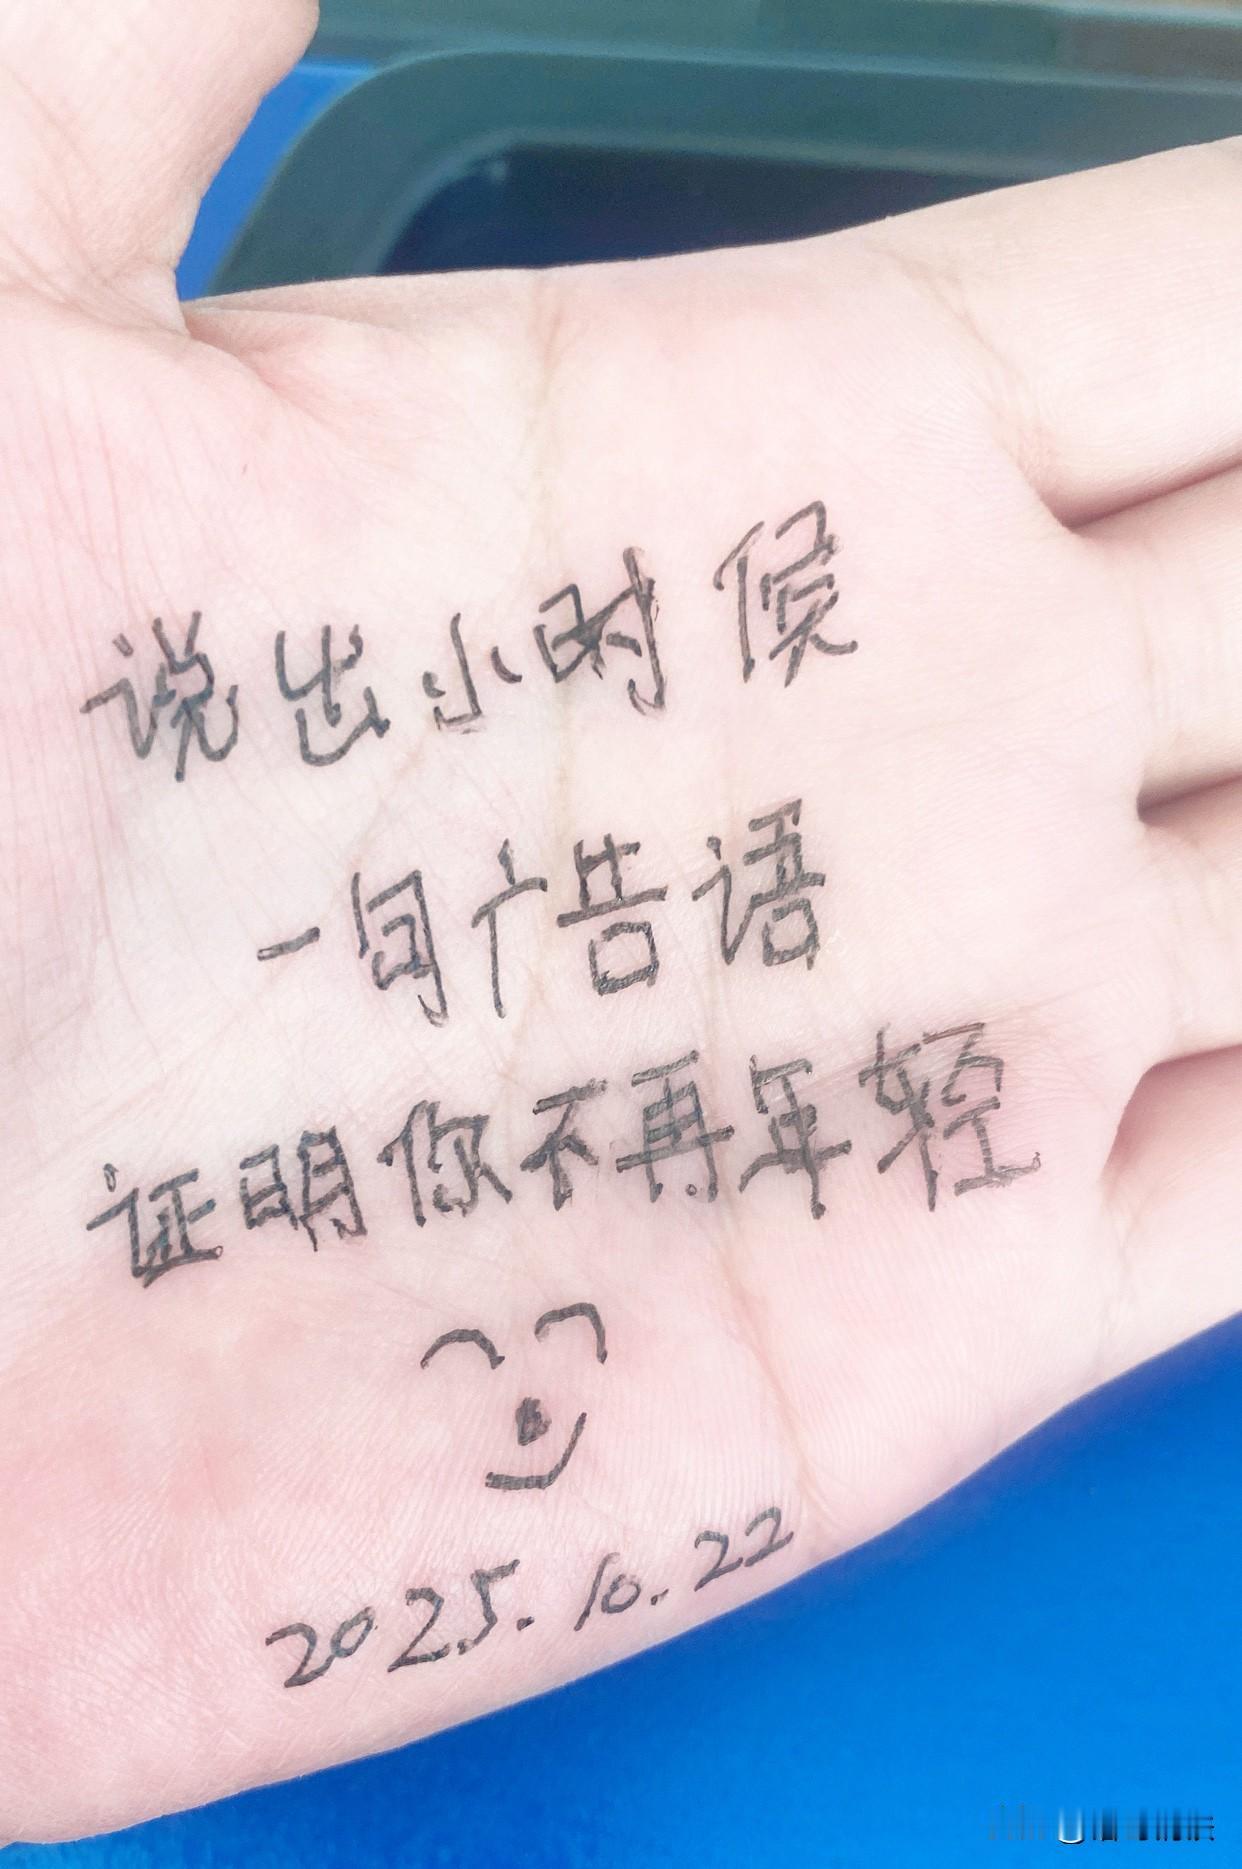 说出小时候
一句广告语
证明你不再年轻
2025.10.22